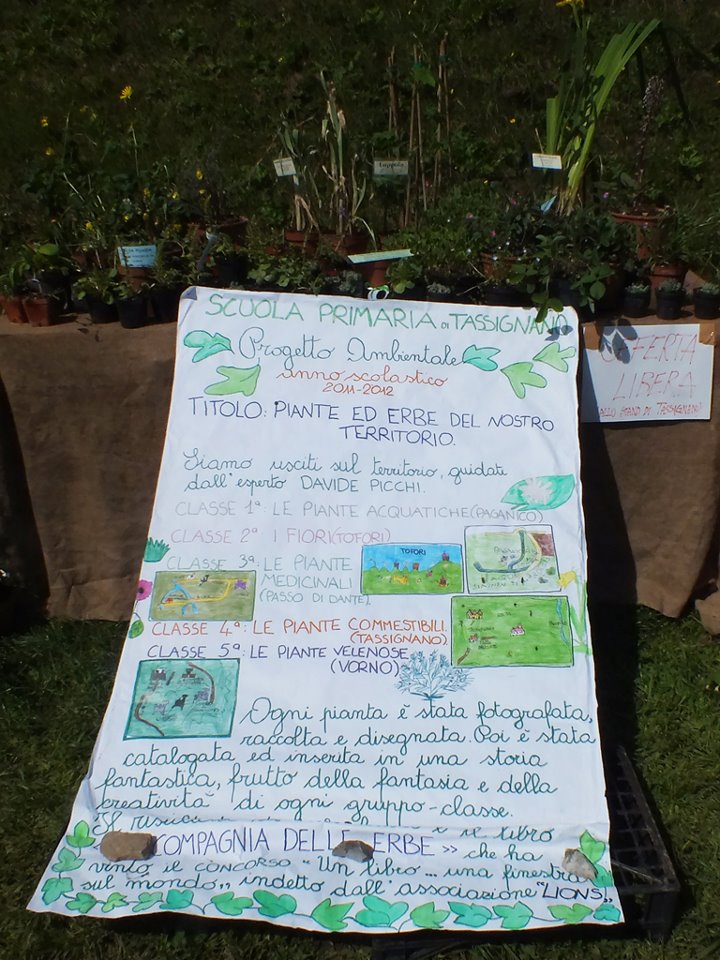 Luppolo
SCUOLA PRIMARIA DI TASSIGNANO
Progetto Ambientale
anno scolastico
2011-2012
TITOLO: PIANTE ED ERBE DEL NOSTRO
TERRITORIO.
Siamo usciti sul territorio, guidati
dall'esperto DAVIDE PICCHI.
CLASSE 1ª: LE PIANTE ACQUATICHE (PAGANICO)
CLASSE 2ª I FIORI (TOFORI)
CLASSE 3ª: LE PIANTE
MEDICINALI
(PASSO DI DANTE)
TOFORI
CLASSE 4ª: LE PIANTE COMMESTIBILI.
(TASSIGNANO)
CLASSE 5ª: LE PIANTE VELENOSE
(VORNO)
Ogni pianta è stata fotografata,
raccolta e disegnata. Poi è stata
catalogata ed inserita in una storia
fantastica, frutto della fantasia e della
creatività di ogni gruppo-classe.
è il libro
COMPAGNIA DELLE ERBE» che ha
vinto il CONCORSO "Un libro... una finestra
sul mondo,, indetto dall'associazione "LIONS,,
OFFERTA
LIBERA
(ALLO STAND DI TASSIGNANO)